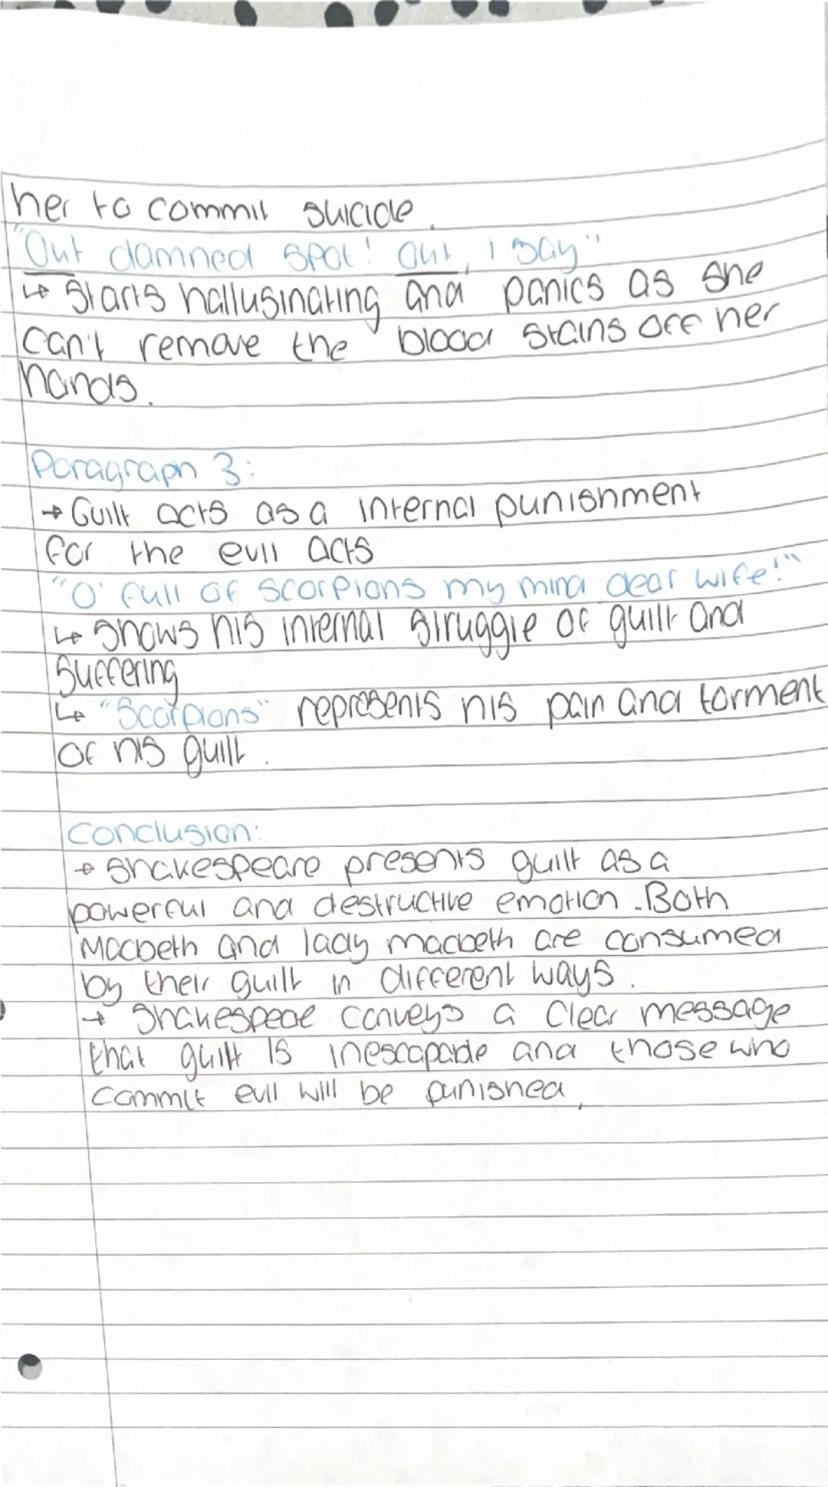 her to commit suicide.
"Out damned spot! Out, I say"
↳ Starts hallusinating and panics as she
can't remove the blood stains off her
hands.
Paragraph 3:
→ Guilt acts as a internal punishment
for the evil acts
"O' full of scorpions my mind dear wife!"
↳ shows his internal struggle of guilt and
suffering
↳ "Scorpions" represents his pain and torment
of his guilt.
Conclusion:
→ Shakespeare presents guilt as a
powerful and destructive emotion. Both
Macbeth and lady macbeth are consumed
by their guilt in different ways.
→ Shakespeae conveys a clear message
that guilt is inescapable and those who
commit evil will be punished,